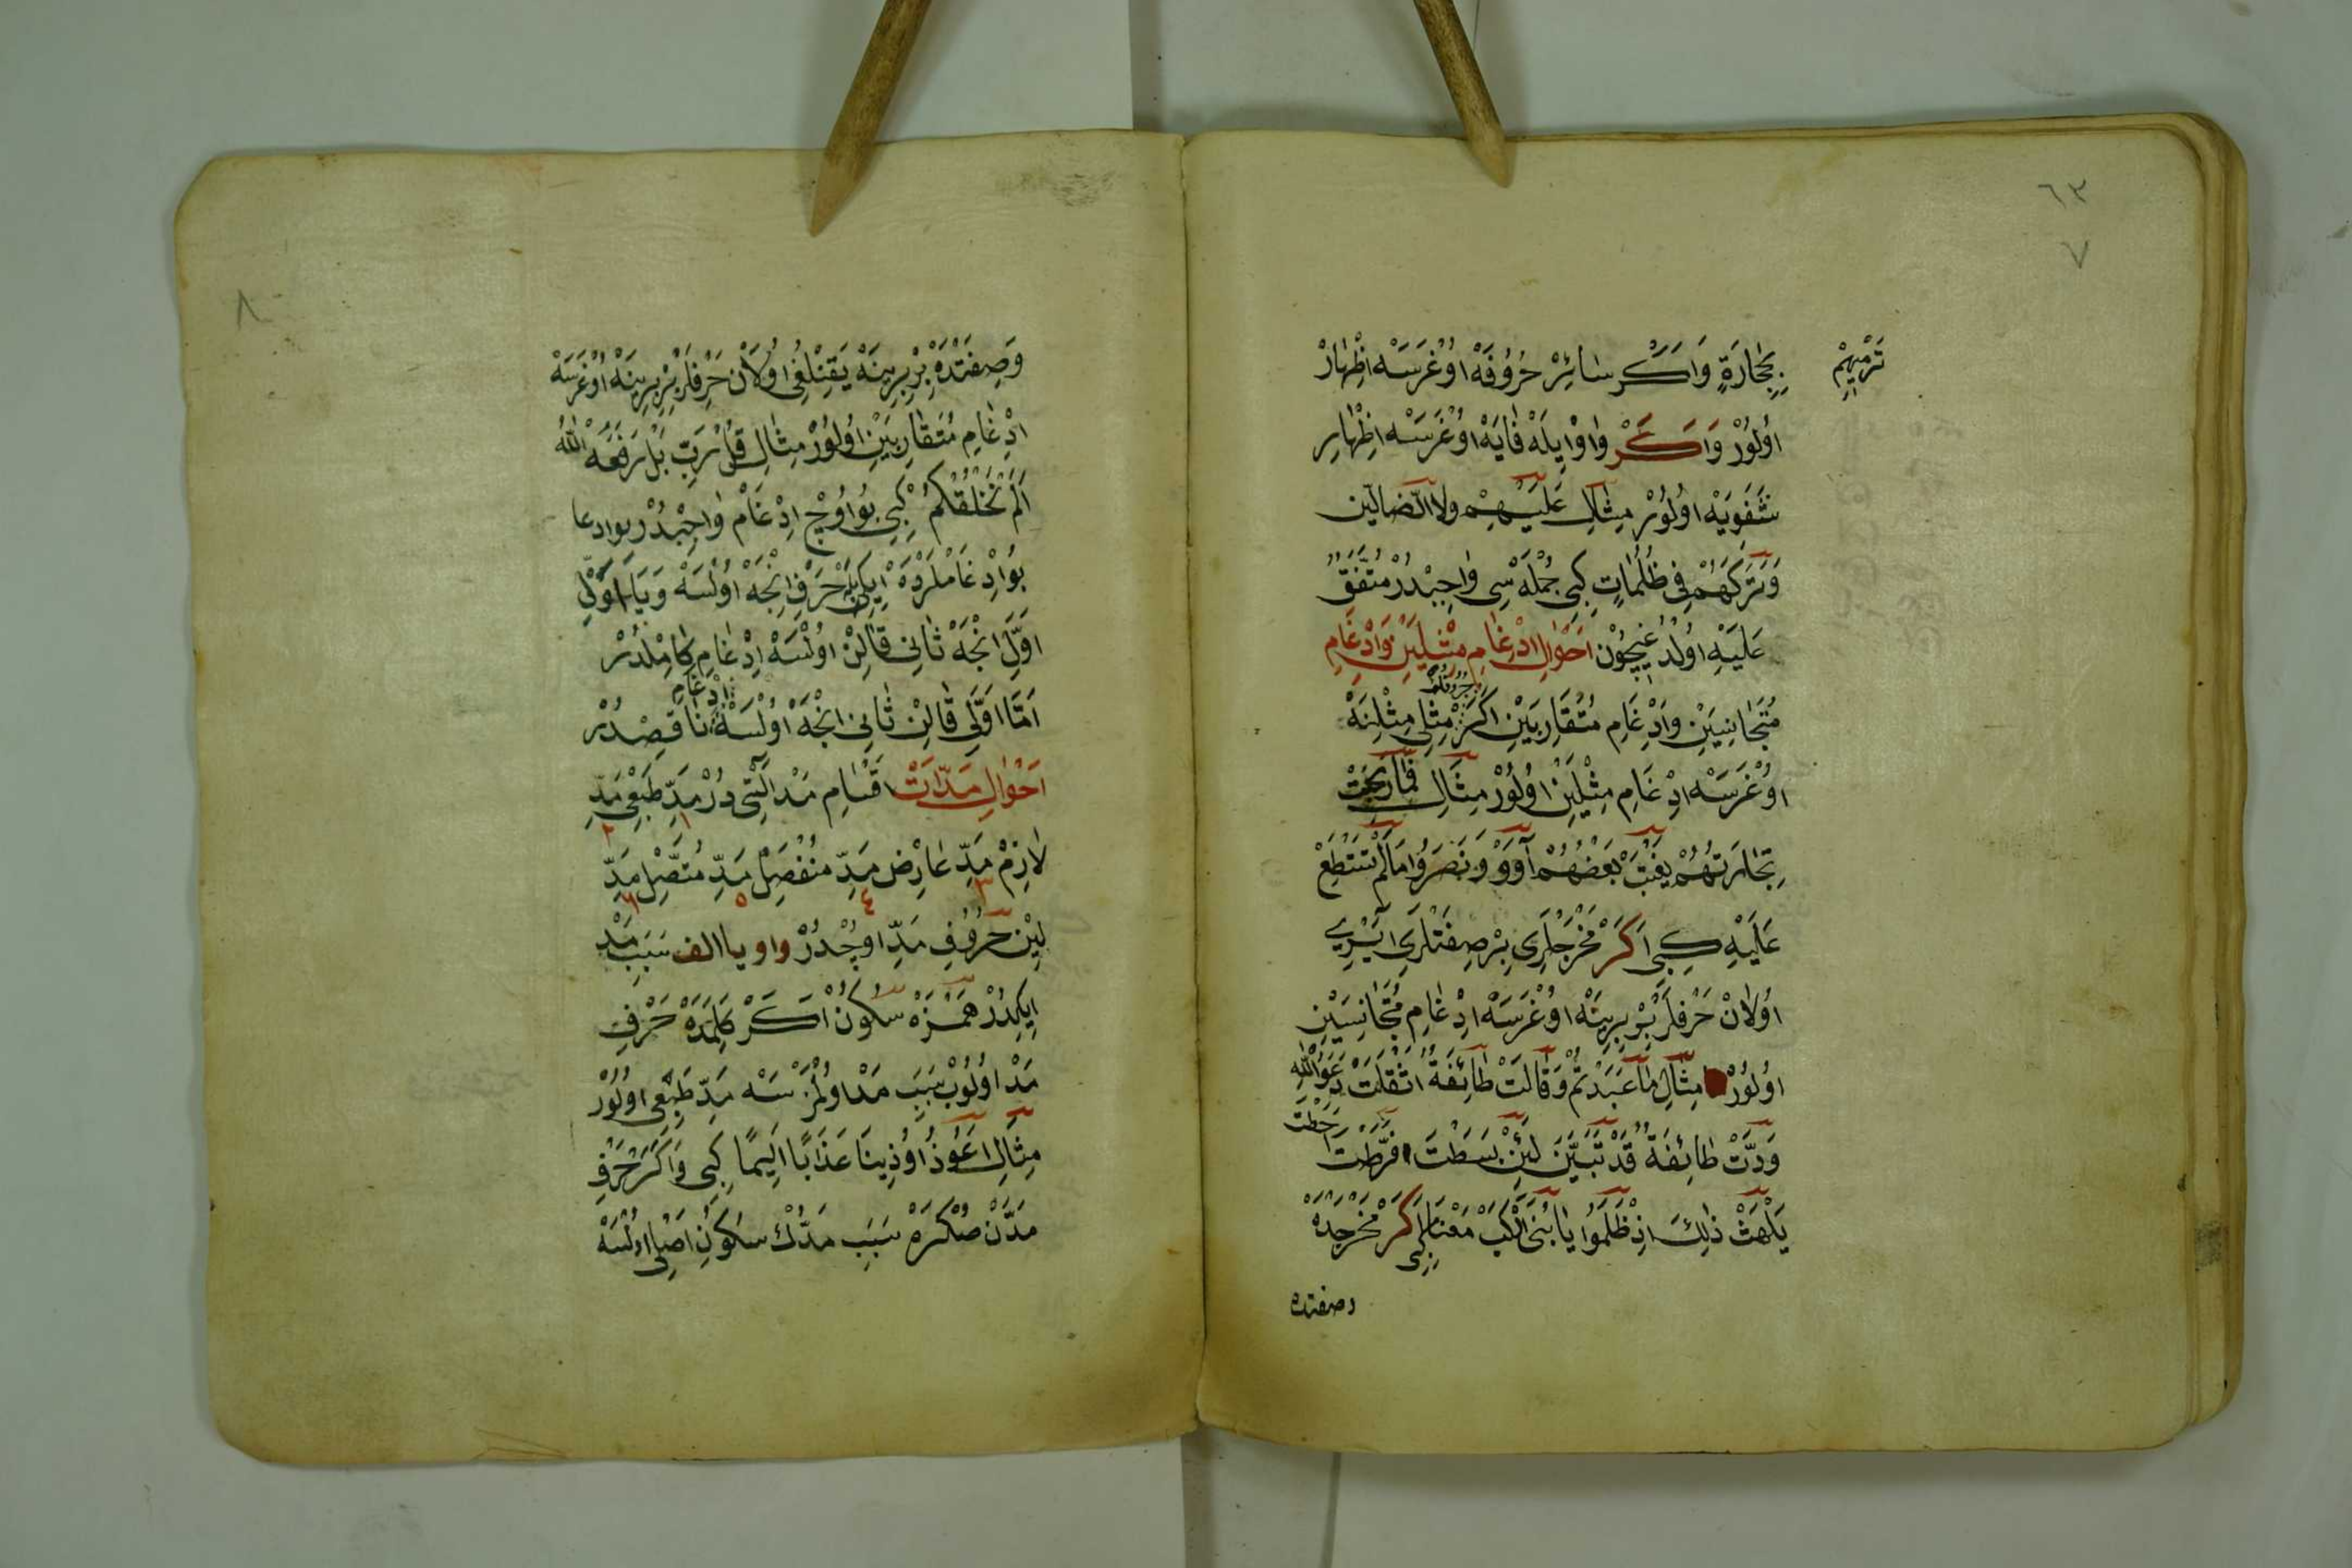 ٦٣
٧
تَرْمِيهِمْ
بِحِجَارَةٍ وَاَكَرْ سَائِرْ حُرُوفَهْ اُوغْرَسَهْ اِظْهَارْ
اُولُورْ وَاَكَرْ وَاوْ اِيلَهْ فَايَهْ اُوغْرَسَهْ اِظْهَارِ
شَفَوِيَهْ اُولُورْ مِثَالِ عَلَيْهِمْ ولا الضالين
وَتَرَكَهُمْ فِى ظُلُمَاتٍ كِبِى جُمْلَهْ سِى وَاجِبْدُرْ مُتَّفَقٌ
عَلَيْهِ اُولْدُغِيچُونْ اَحْوَالِ ادْغَامِ مِثْلَيْنِ وَادْغَامِ
مُتَجَانِسَيْنِ وَادْغَامِ مُتَقَارِبَيْنِ اَكَرْ حُرُوفْ مِثْلِى مِثْلِنَهْ
اُوغْرَسَهْ ادْغَامِ مِثْلَيْنْ اُولُورْ مِثَالِ فَمَا رَبِحَتْ
تِجَارَتُهُمْ يَغْتَبْ بَعْضُهُمْ آوَوْ وَنَصَرُوا مَالَمْ تَسْتَطِعْ
عَلَيْهِ كِبِى اَكَرْ مَخْرَجْلَرِى بِرْ صِفَتْلَرِى اَيْرِى
اُولَانْ حَرْفلَرْ بِرْبِرِينَهْ اُوغْرَسَهْ ادْغَامِ مُتَجَانِسَيْنِ
اُولُورْ مِثَالِ مَاعَبَدْتُمْ وَقَالَتْ طَائِفَةٌ اَثْقَلَتْ دَعَوَا اللّٰهَ
وَدَّتْ طَائِفَةٌ قَدْ تَبَيَّنَ لَئِنْ بَسَطْتَ فَرَّطْتُ اَحَطْتُ
يَلْهَثْ ذٰلِكَ اِذْ ظَلَمُوا يَابُنَىَّ ارْكَبْ مَعَنَا كِبِى اَكَرْ مَخْرَجِدَهْ
وصفتده
٨
وَصِفَتْدَهْ بِرْبِرِينَهْ يَقِنْلِغِى اُولَانْ حَرْفلَرْ بِرْبِرِينَهْ اُوغْرَسَهْ
ادْغَامِ مُتَقَارِبَيْنِ اُولُورْ مِثَالِ قُلْ رَبِّ بَلْ رَفَعَهُ اللّٰهُ
اَلَمْ نَخْلُقْكُمْ كِبِى بُو اُوچْ ادْغَامْ وَاجِبْدُرْ بو ادغا
بُو ادْغَامْلَرْدَهْ اِيكِى حَرْفِ اِنْجَهْ اُولْسَهْ وَيَا اَوَّلِى
اَوَّلْ اِنْجَهْ ثَانِى قَالِنْ اُولْسَهْ ادْغَامِ كَامِلْدُرْ
اَمَّا اَوَّلِى قَالِنْ ثَانِى اِنْجَهْ اُولْسَهْ ادْغَامِ نَاقِصْدُرْ
اَحْوَالِ مَدَّاتْ اَقْسَامِ مَدْ اَلْتِى دُرْ مَدِّ طَبِيعِى مَدِّ
١ ٢
لَازِمْ مَدِّ عَارِضْ مَدِّ مُنْفَصِلْ مَدِّ مُتَّصِلْ مَدِّ
٣ ٤ ٥ ٦
لِينْ حُرُوفِ مَدِّ اوچْدُرْ واو يا الف سَبَبِ مَدْ
اِيكِدُرْ هَمْزَهْ سُكُونْ اَكَرْ كَلِمَدَهْ حَرْفِ
مَدْ اُولُوبْ سَبَبِ مَدْ اولْمَزْسَهْ مَدِّ طَبِيعِى اُولُورْ
مِثَالِ اَعُوذُ اُوذِينَا عَذَابًا اَلِيمًا كِبِى وَاَكَرْ حَرْفِ
مَدَّنْ صُكْرَهْ سَبَبِ مَدَّكْ سُكُونِ اَصْلِى اولْسَهْ